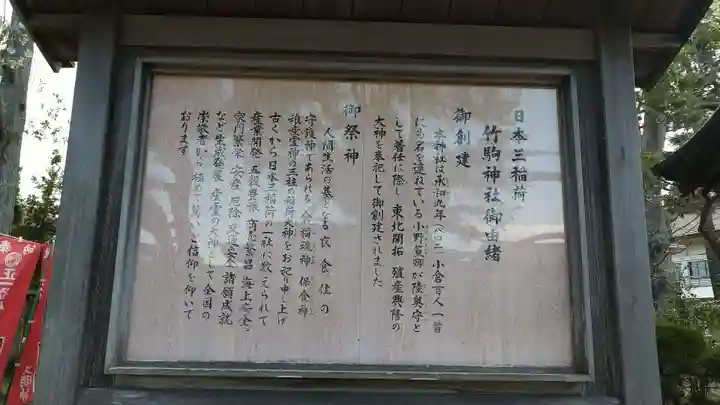 日本三稲荷
竹駒神社御由緒
御創建
本神社は承和九年(八四二)小倉百人一首
にも名を連ねている小野篁卿が陸奥守と
して着任に際し 東北開拓 殖産興隆の
大神を奉祀して御創建されました
御祭神
人間生活の基となる 衣 食 住 の
守護神であられる 倉稲魂神 保食神
稚産霊神の三柱の稲荷大神をお祀り申し上げ
古くから日本三稲荷の一社に数えられて
産業開発 五穀豊穣 商売繁昌 海上安全
家門繁栄 安産 厄除 交通安全 諸願成就
など 生成発展 産霊の大神として 全国の
崇敬者から極めて篤いご信仰を仰いで
おります
奉
正一